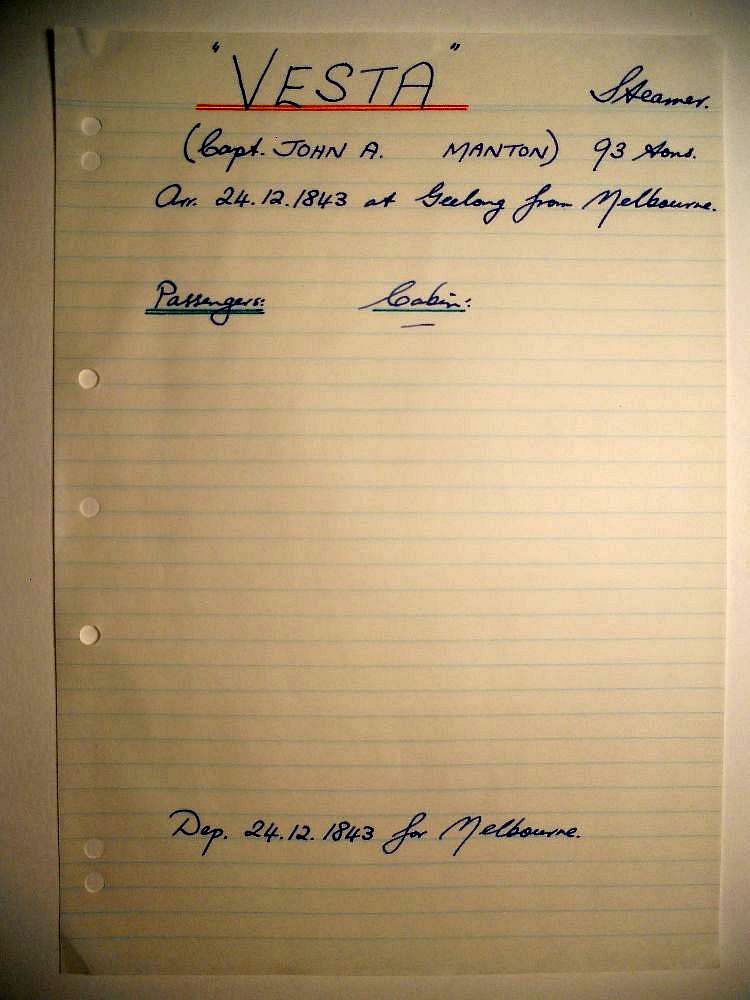 "VESTA" Steamer.
(Capt. JOHN A. MANTON) 93 tons.
Arr. 24.12.1843 at Geelong from Melbourne.
Passengers: Cabin:
—
Dep. 24.12.1843 for Melbourne.